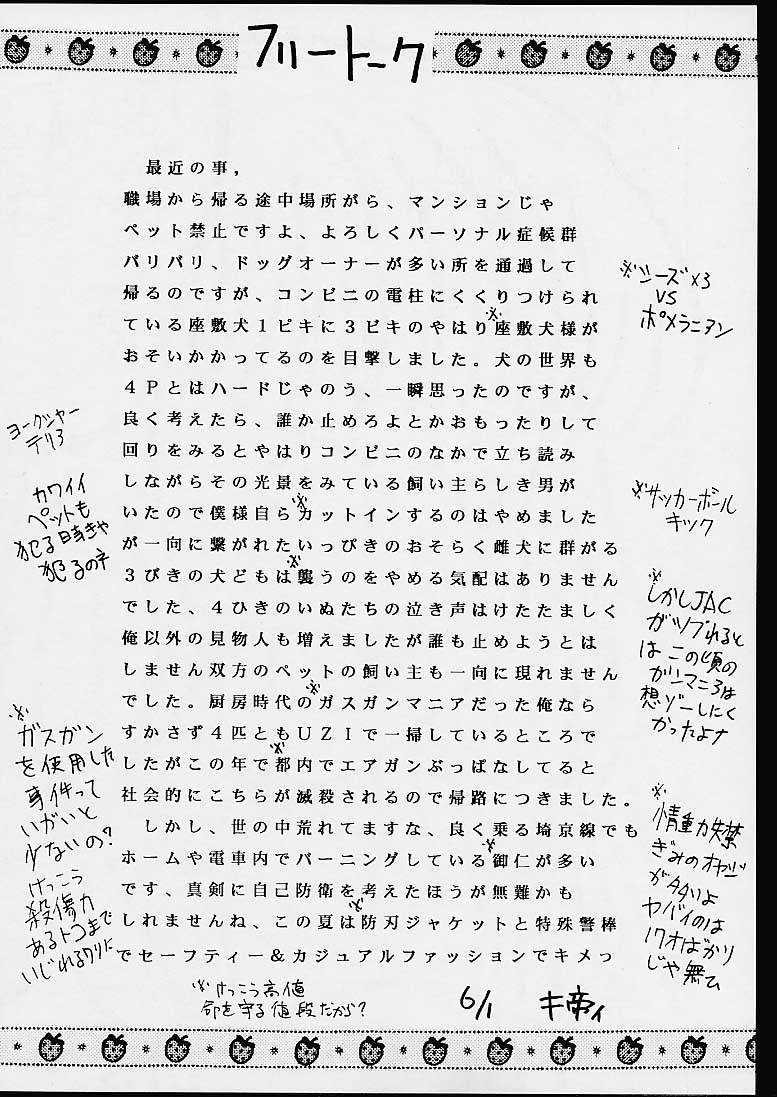 フリートーク
最近の事，
職場から帰る途中場所がら、マンションじゃ
ペット禁止ですよ、よろしくパーソナル症候群
バリバリ、ドッグオーナーが多い所を通過して
帰るのですが、コンビニの電柱にくくりつけられ
ている座敷犬１ピキに３ビキのやはり※座敷犬様が
おそいかかってるのを目撃しました。犬の世界も
４Ｐとはハードじゃのう、一瞬思ったのですが、
良く考えたら、誰か止めろよとかおもったりして
回りをみるとやはりコンビニのなかで立ち読み
しながらその光景をみている飼い主らしき男が
いたので僕様自ら※カットインするのはやめました
が一向に繋がれたいっぴきのおそらく雌犬に群がる
３びきの犬どもは※襲うのをやめる気配はありません
でした、４ひきのいぬたちの泣き声はけたたましく
俺以外の見物人も増えましたが誰も止めようとは
しません双方のペットの飼い主も一向に現れません
でした。厨房時代の※ガスガンマニアだった俺なら
すかさず４匹ともＵＺＩで一掃しているところで
したがこの年で※都内でエアガンぶっぱなしてると
社会的にこちらが滅殺されるので帰路につきました。
しかし、世の中荒れてますな、良く乗る埼京線でも
ホームや電車内でバーニングしている※御仁が多い
です、真剣に自己防衛を考えたほうが無難かも
しれませんね、この夏は※防刃ジャケットと特殊警棒
でセーフティー＆カジュアルファッションでキメっ
※シーズ×3
VS
ポメラニアン
ヨークシャー
テリア
カワイイ
ペットも
犯る時きゃ
犯るのネ
※サッカーボール
キック
※しかしJAC
がツブれると
はこの頃の
ガンマニアは
想ゾーしにく
かったよナ
※
ガスガン
を使用した
事件って
いがいと
少ないの?
けっこう
殺傷力
あるトコまで
いじれるワリに
※
情重力失禁
ぎみのオヤジ
が多いよ
ヤバイのは
17才ばかり
じゃ無ひ
※けっこう高値
命を守る値段だから?
6/1